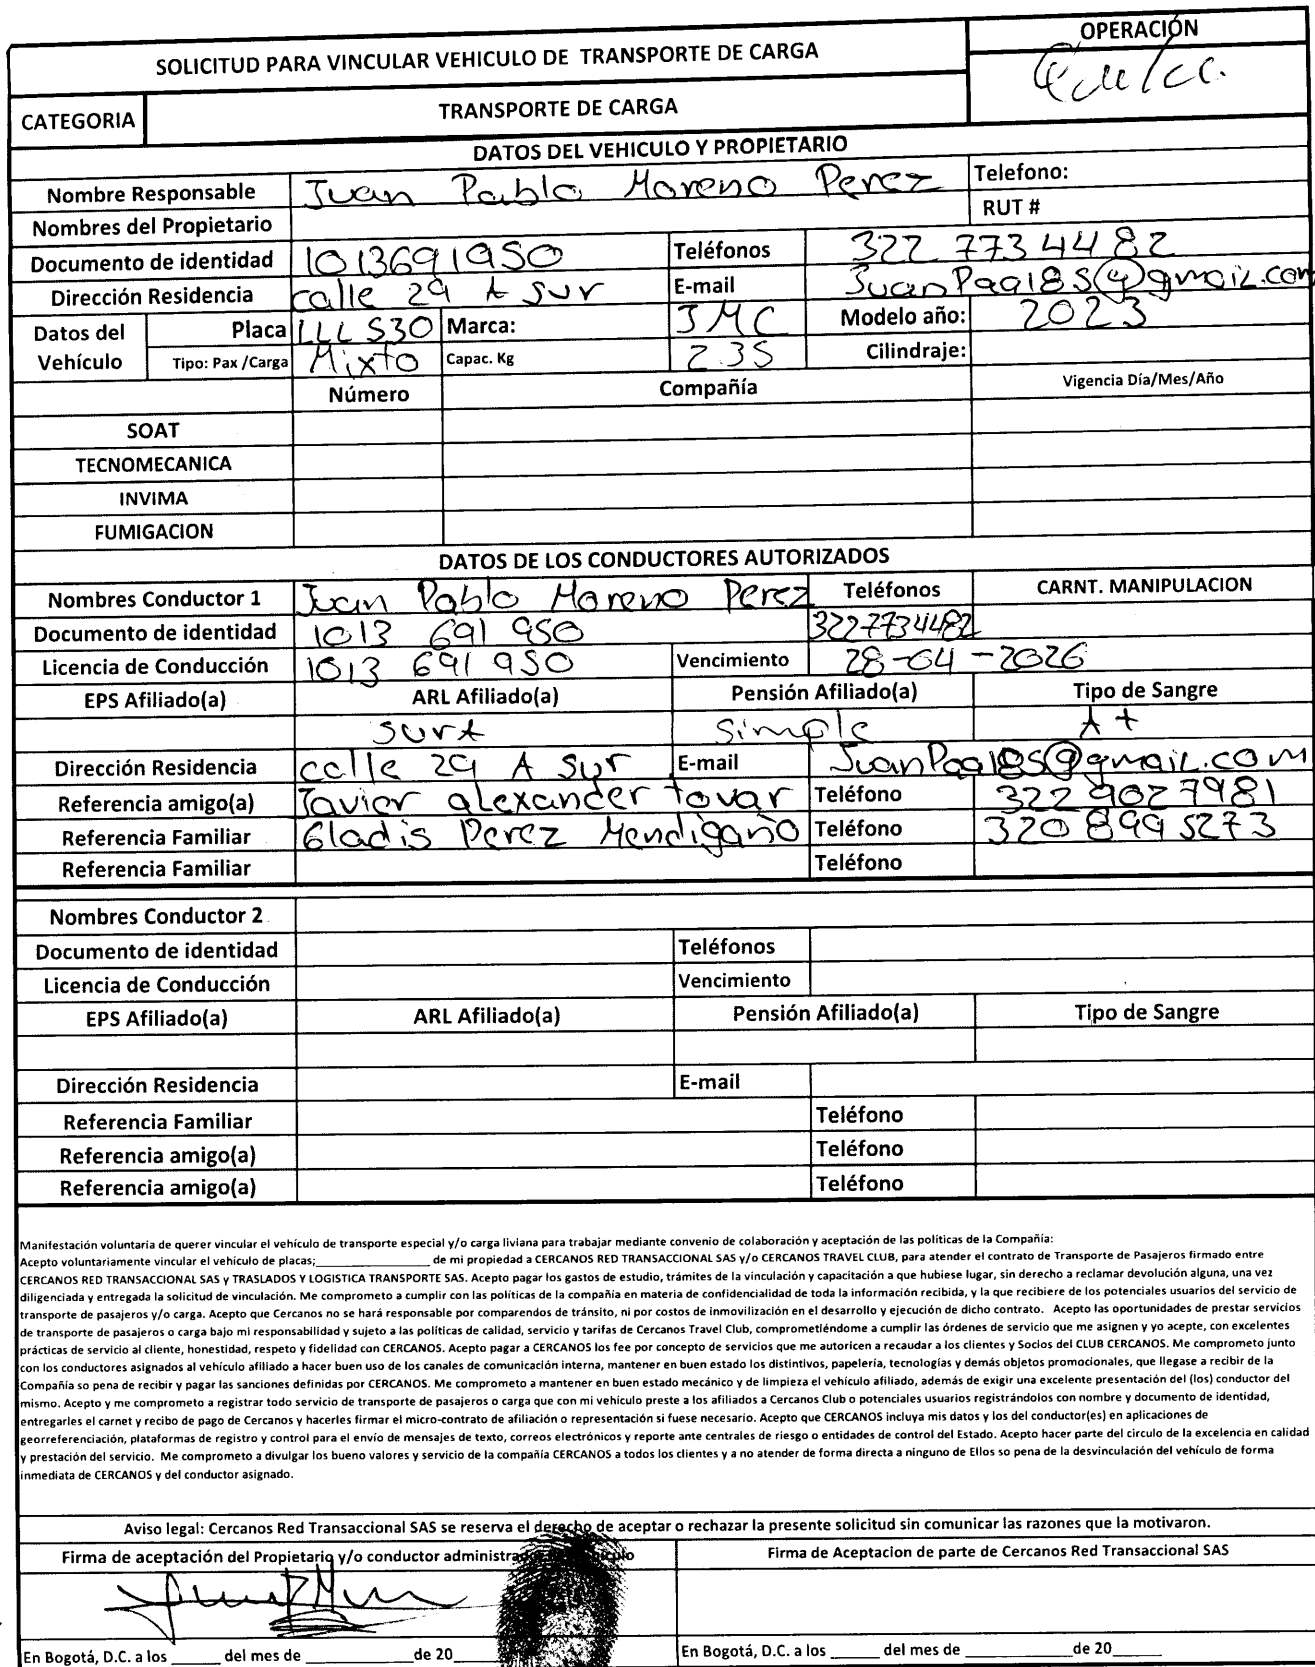 OPERACIÓN
SOLICITUD PARA VINCULAR VEHICULO DE TRANSPORTE DE CARGA
CATEGORIA TRANSPORTE DE CARGA
DATOS DEL VEHICULO Y PROPIETARIO
Nombre Responsable Juan Pablo Moreno Perez Telefono:
Nombres del Propietario RUT #
Documento de identidad 1013691950 Teléfonos 322 773 4482
Dirección Residencia calle 29 A sur E-mail JuanPaa185@gmail.com
Datos del Vehículo Placa LLL530 Marca: JMC Modelo año: 2023
Tipo: Pax /Carga Mixto Capac. Kg 2.35 Cilindraje:
Número Compañía Vigencia Día/Mes/Año
SOAT
TECNOMECANICA
INVIMA
FUMIGACION
DATOS DE LOS CONDUCTORES AUTORIZADOS
Nombres Conductor 1 Juan Pablo Moreno Perez Teléfonos CARNT. MANIPULACION
Documento de identidad 1013 691 950 3227734482
Licencia de Conducción 1013 691 950 Vencimiento 28-04-2026
EPS Afiliado(a) ARL Afiliado(a) Pensión Afiliado(a) Tipo de Sangre
surA simple A+
Dirección Residencia calle 29 A sur E-mail JuanPaa185@gmail.com
Referencia amigo(a) Javier alexander tovar Teléfono 322 9027981
Referencia Familiar Gladis Perez Mendigaño Teléfono 320 8995273
Referencia Familiar Teléfono
Nombres Conductor 2
Documento de identidad Teléfonos
Licencia de Conducción Vencimiento
EPS Afiliado(a) ARL Afiliado(a) Pensión Afiliado(a) Tipo de Sangre
Dirección Residencia E-mail
Referencia Familiar Teléfono
Referencia amigo(a) Teléfono
Referencia amigo(a) Teléfono
Manifestación voluntaria de querer vincular el vehículo de transporte especial y/o carga liviana para trabajar mediante convenio de colaboración y aceptación de las políticas de la Compañía:
Acepto voluntariamente vincular el vehículo de placas;____________________ de mi propiedad a CERCANOS RED TRANSACCIONAL SAS y/o CERCANOS TRAVEL CLUB, para atender el contrato de Transporte de Pasajeros firmado entre
CERCANOS RED TRANSACCIONAL SAS y TRASLADOS Y LOGISTICA TRANSPORTE SAS. Acepto pagar los gastos de estudio, trámites de la vinculación y capacitación a que hubiese lugar, sin derecho a reclamar devolución alguna, una vez
diligenciada y entregada la solicitud de vinculación. Me comprometo a cumplir con las políticas de la compañía en materia de confidencialidad de toda la información recibida, y la que recibiere de los potenciales usuarios del servicio de
transporte de pasajeros y/o carga. Acepto que Cercanos no se hará responsable por comparendos de tránsito, ni por costos de inmovilización en el desarrollo y ejecución de dicho contrato. Acepto las oportunidades de prestar servicios
de transporte de pasajeros o carga bajo mi responsabilidad y sujeto a las políticas de calidad, servicio y tarifas de Cercanos Travel Club, comprometiéndome a cumplir las órdenes de servicio que me asignen y yo acepte, con excelentes
prácticas de servicio al cliente, honestidad, respeto y fidelidad con CERCANOS. Acepto pagar a CERCANOS los fee por concepto de servicios que me autoricen a recaudar a los clientes y Socios del CLUB CERCANOS. Me comprometo junto
con los conductores asignados al vehículo afiliado a hacer buen uso de los canales de comunicación interna, mantener en buen estado los distintivos, papelería, tecnologías y demás objetos promocionales, que llegase a recibir de la
Compañía so pena de recibir y pagar las sanciones definidas por CERCANOS. Me comprometo a mantener en buen estado mecánico y de limpieza el vehículo afiliado, además de exigir una excelente presentación del (los) conductor del
mismo. Acepto y me comprometo a registrar todo servicio de transporte de pasajeros o carga que con mi vehículo preste a los afiliados a Cercanos Club o potenciales usuarios registrándolos con nombre y documento de identidad,
entregarles el carnet y recibo de pago de Cercanos y hacerles firmar el micro-contrato de afiliación o representación si fuese necesario. Acepto que CERCANOS incluya mis datos y los del conductor(es) en aplicaciones de
georreferenciación, plataformas de registro y control para el envío de mensajes de texto, correos electrónicos y reporte ante centrales de riesgo o entidades de control del Estado. Acepto hacer parte del circulo de la excelencia en calidad
y prestación del servicio. Me comprometo a divulgar los bueno valores y servicio de la compañía CERCANOS a todos los clientes y a no atender de forma directa a ninguno de Ellos so pena de la desvinculación del vehículo de forma
inmediata de CERCANOS y del conductor asignado.
Aviso legal: Cercanos Red Transaccional SAS se reserva el derecho de aceptar o rechazar la presente solicitud sin comunicar las razones que la motivaron.
Firma de aceptación del Propietario y/o conductor Firma de Aceptacion de parte de Cercanos Red Transaccional SAS
En Bogotá, D.C. a los ______ del mes de ______________de 20____ En Bogotá, D.C. a los ______ del mes de _____________de 20______